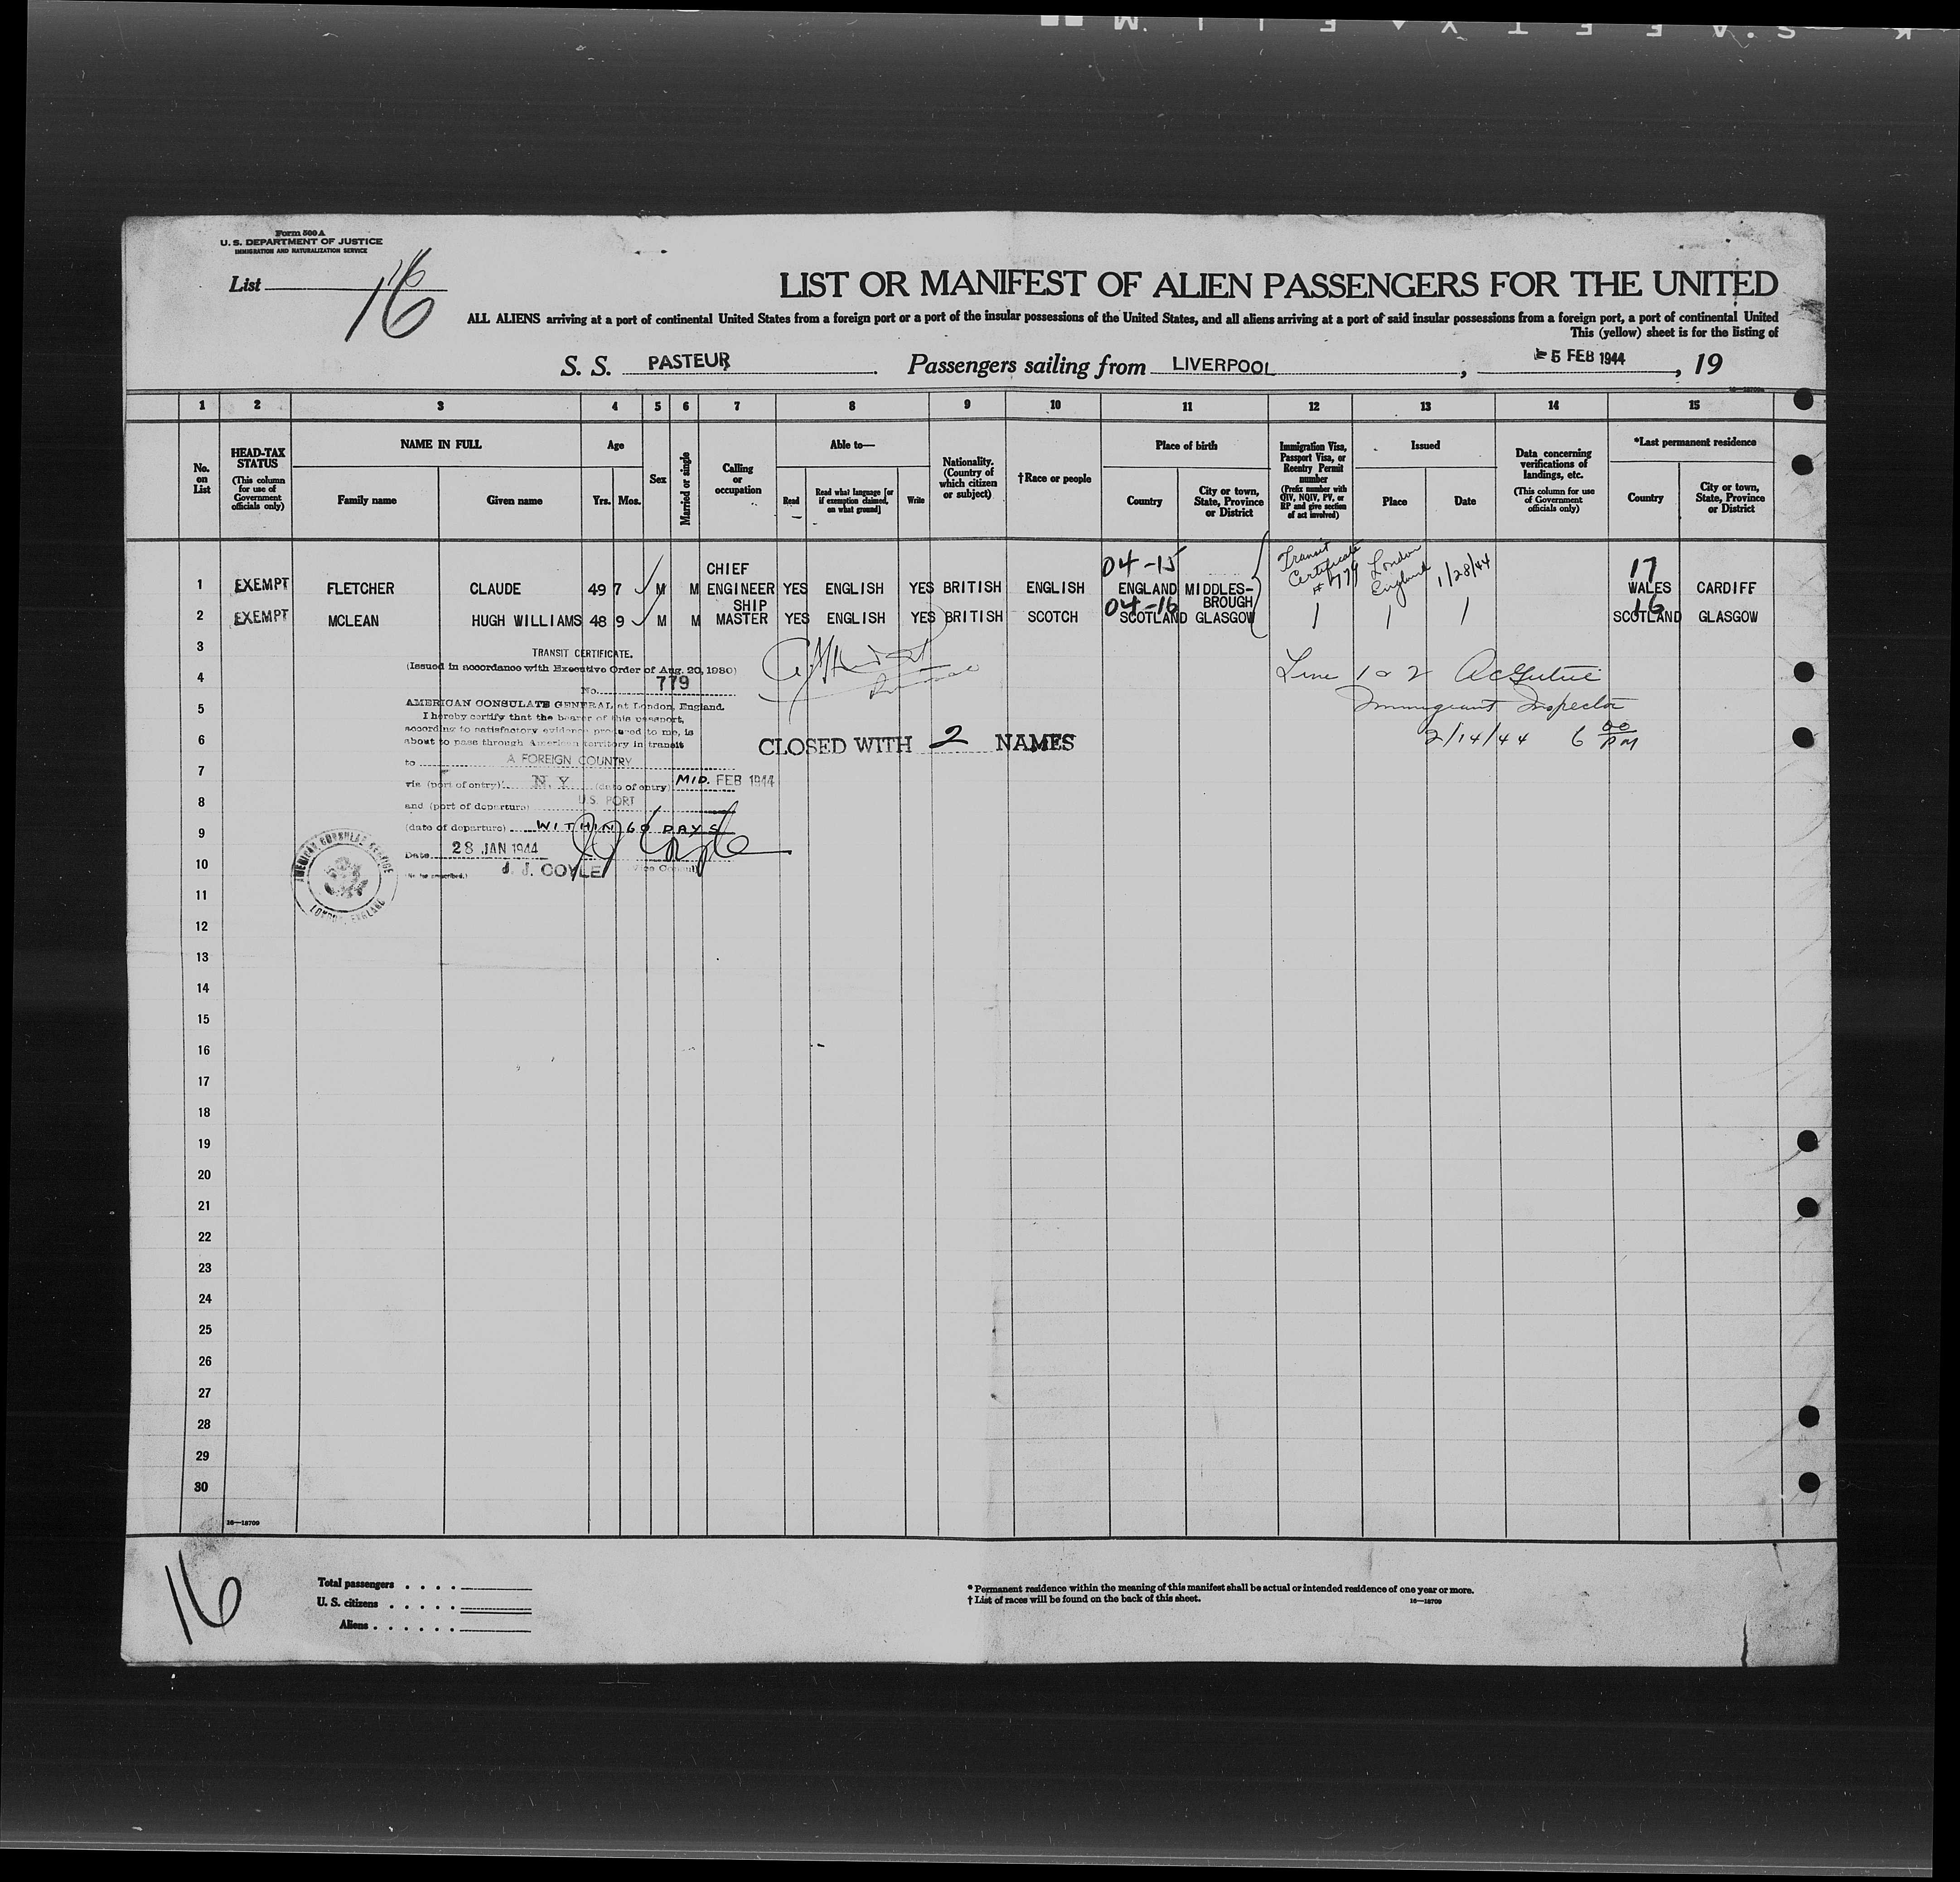 K S A F E T Y F I L M
Form 500 A
U. S. DEPARTMENT OF JUSTICE
IMMIGRATION AND NATURALIZATION SERVICE
List 16
LIST OR MANIFEST OF ALIEN PASSENGERS FOR THE UNITED
ALL ALIENS arriving at a port of continental United States from a foreign port or a port of the insular possessions of the United States, and all aliens arriving at a port of said insular possessions from a foreign port, a port of continental United
This (yellow) sheet is for the listing of
S. S. PASTEUR. Passengers sailing from LIVERPOOL, 5 FEB 1944, 19
1 2 3 4 5 6 7 8 9 10 11 12 13 14 15
No. on List
HEAD-TAX STATUS (This column for use of Government officials only)
NAME IN FULL
Family name Given name
Age
Yrs. Mos.
Sex
Married or single
Calling or occupation
Able to—
Read Read what language [or if exemption claimed, on what ground] Write
Nationality. (Country of which citizen or subject)
†Race or people
Place of birth
Country City or town, State, Province or District
Immigration Visa, Passport Visa, or Reentry Permit number (Prefix number with QIV, NQIV, PV, or RP and give section of act involved)
Issued
Place Date
Data concerning verifications of landings, etc. (This column for use of Government officials only)
*Last permanent residence
Country City or town, State, Province or District
04-15 17
1 EXEMPT FLETCHER CLAUDE 49 7 M M CHIEF ENGINEER YES ENGLISH YES BRITISH ENGLISH ENGLAND MIDDLES-BROUGH Transit Certificate # 779 London England 1/28/44 WALES CARDIFF
04-16 16
2 EXEMPT MCLEAN HUGH WILLIAMS 48 9 M M SHIP MASTER YES ENGLISH YES BRITISH SCOTCH SCOTLAND GLASGOW SCOTLAND GLASGOW
3
4
5
6
7
8
9
10
11
12
13
14
15
16
17
18
19
20
21
22
23
24
25
26
27
28
29
30
TRANSIT CERTIFICATE.
(Issued in accordance with Executive Order of Aug. 20, 1980)
No. 779
AMERICAN CONSULATE GENERAL at London, England.
I hereby certify that the bearer of this passport,
according to satisfactory evidence produced to me, is
about to pass through American territory in transit
to A FOREIGN COUNTRY
via (port of entry) N.Y (date of entry) MID. FEB 1944
and (port of departure) U.S. PORT
(date of departure) WITHIN 60 DAYS
Date 28 JAN 1944
J. J. COYLE Vice Consul
AMERICAN CONSULAR SERVICE
LONDON, ENGLAND
CLOSED WITH 2 NAMES
Line 1 & 2
Immigrant Inspector
2/14/44 6 00 PM
16—18709
16
Total passengers
U. S. citizens
Aliens
* Permanent residence within the meaning of this manifest shall be actual or intended residence of one year or more.
† List of races will be found on the back of this sheet.
16—18709